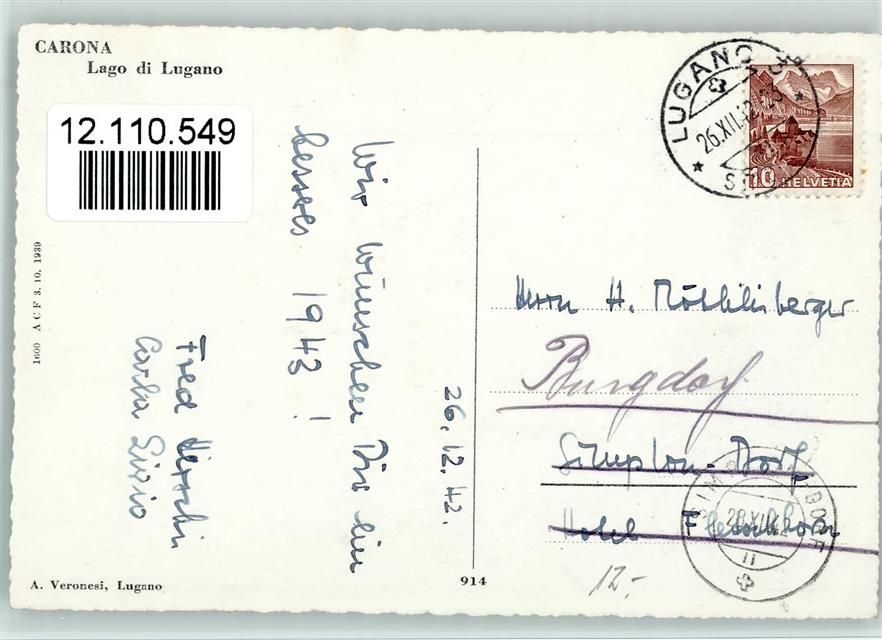 CARONA
Lago di Lugano
12.110.549
1600 A C F 3. 10. 1939
26.12.42.
Wir wünschen Dir ein
besseres 1943!
Fred
Carla
A. Veronesi, Lugano
914
LUGANO
26.XII.42
10 HELVETIA
Herrn H. Röthlisberger
Burgdorf
Simplon-Dorf
Hotel Fletschhorn
SIMPLON DORF
28.XII.42
11
12.-